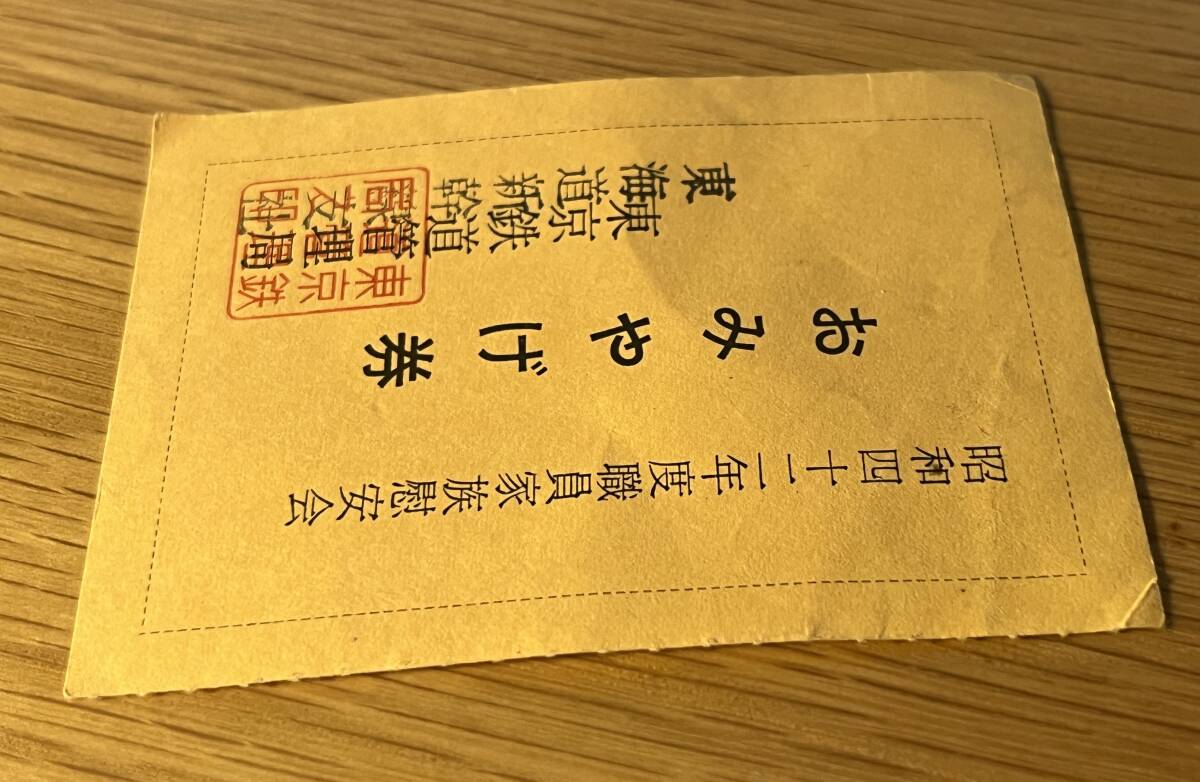 昭和四十二年度職員家族慰安会
おみやげ券
東京鉄道管理局
東海道新幹線支社
東京鉄